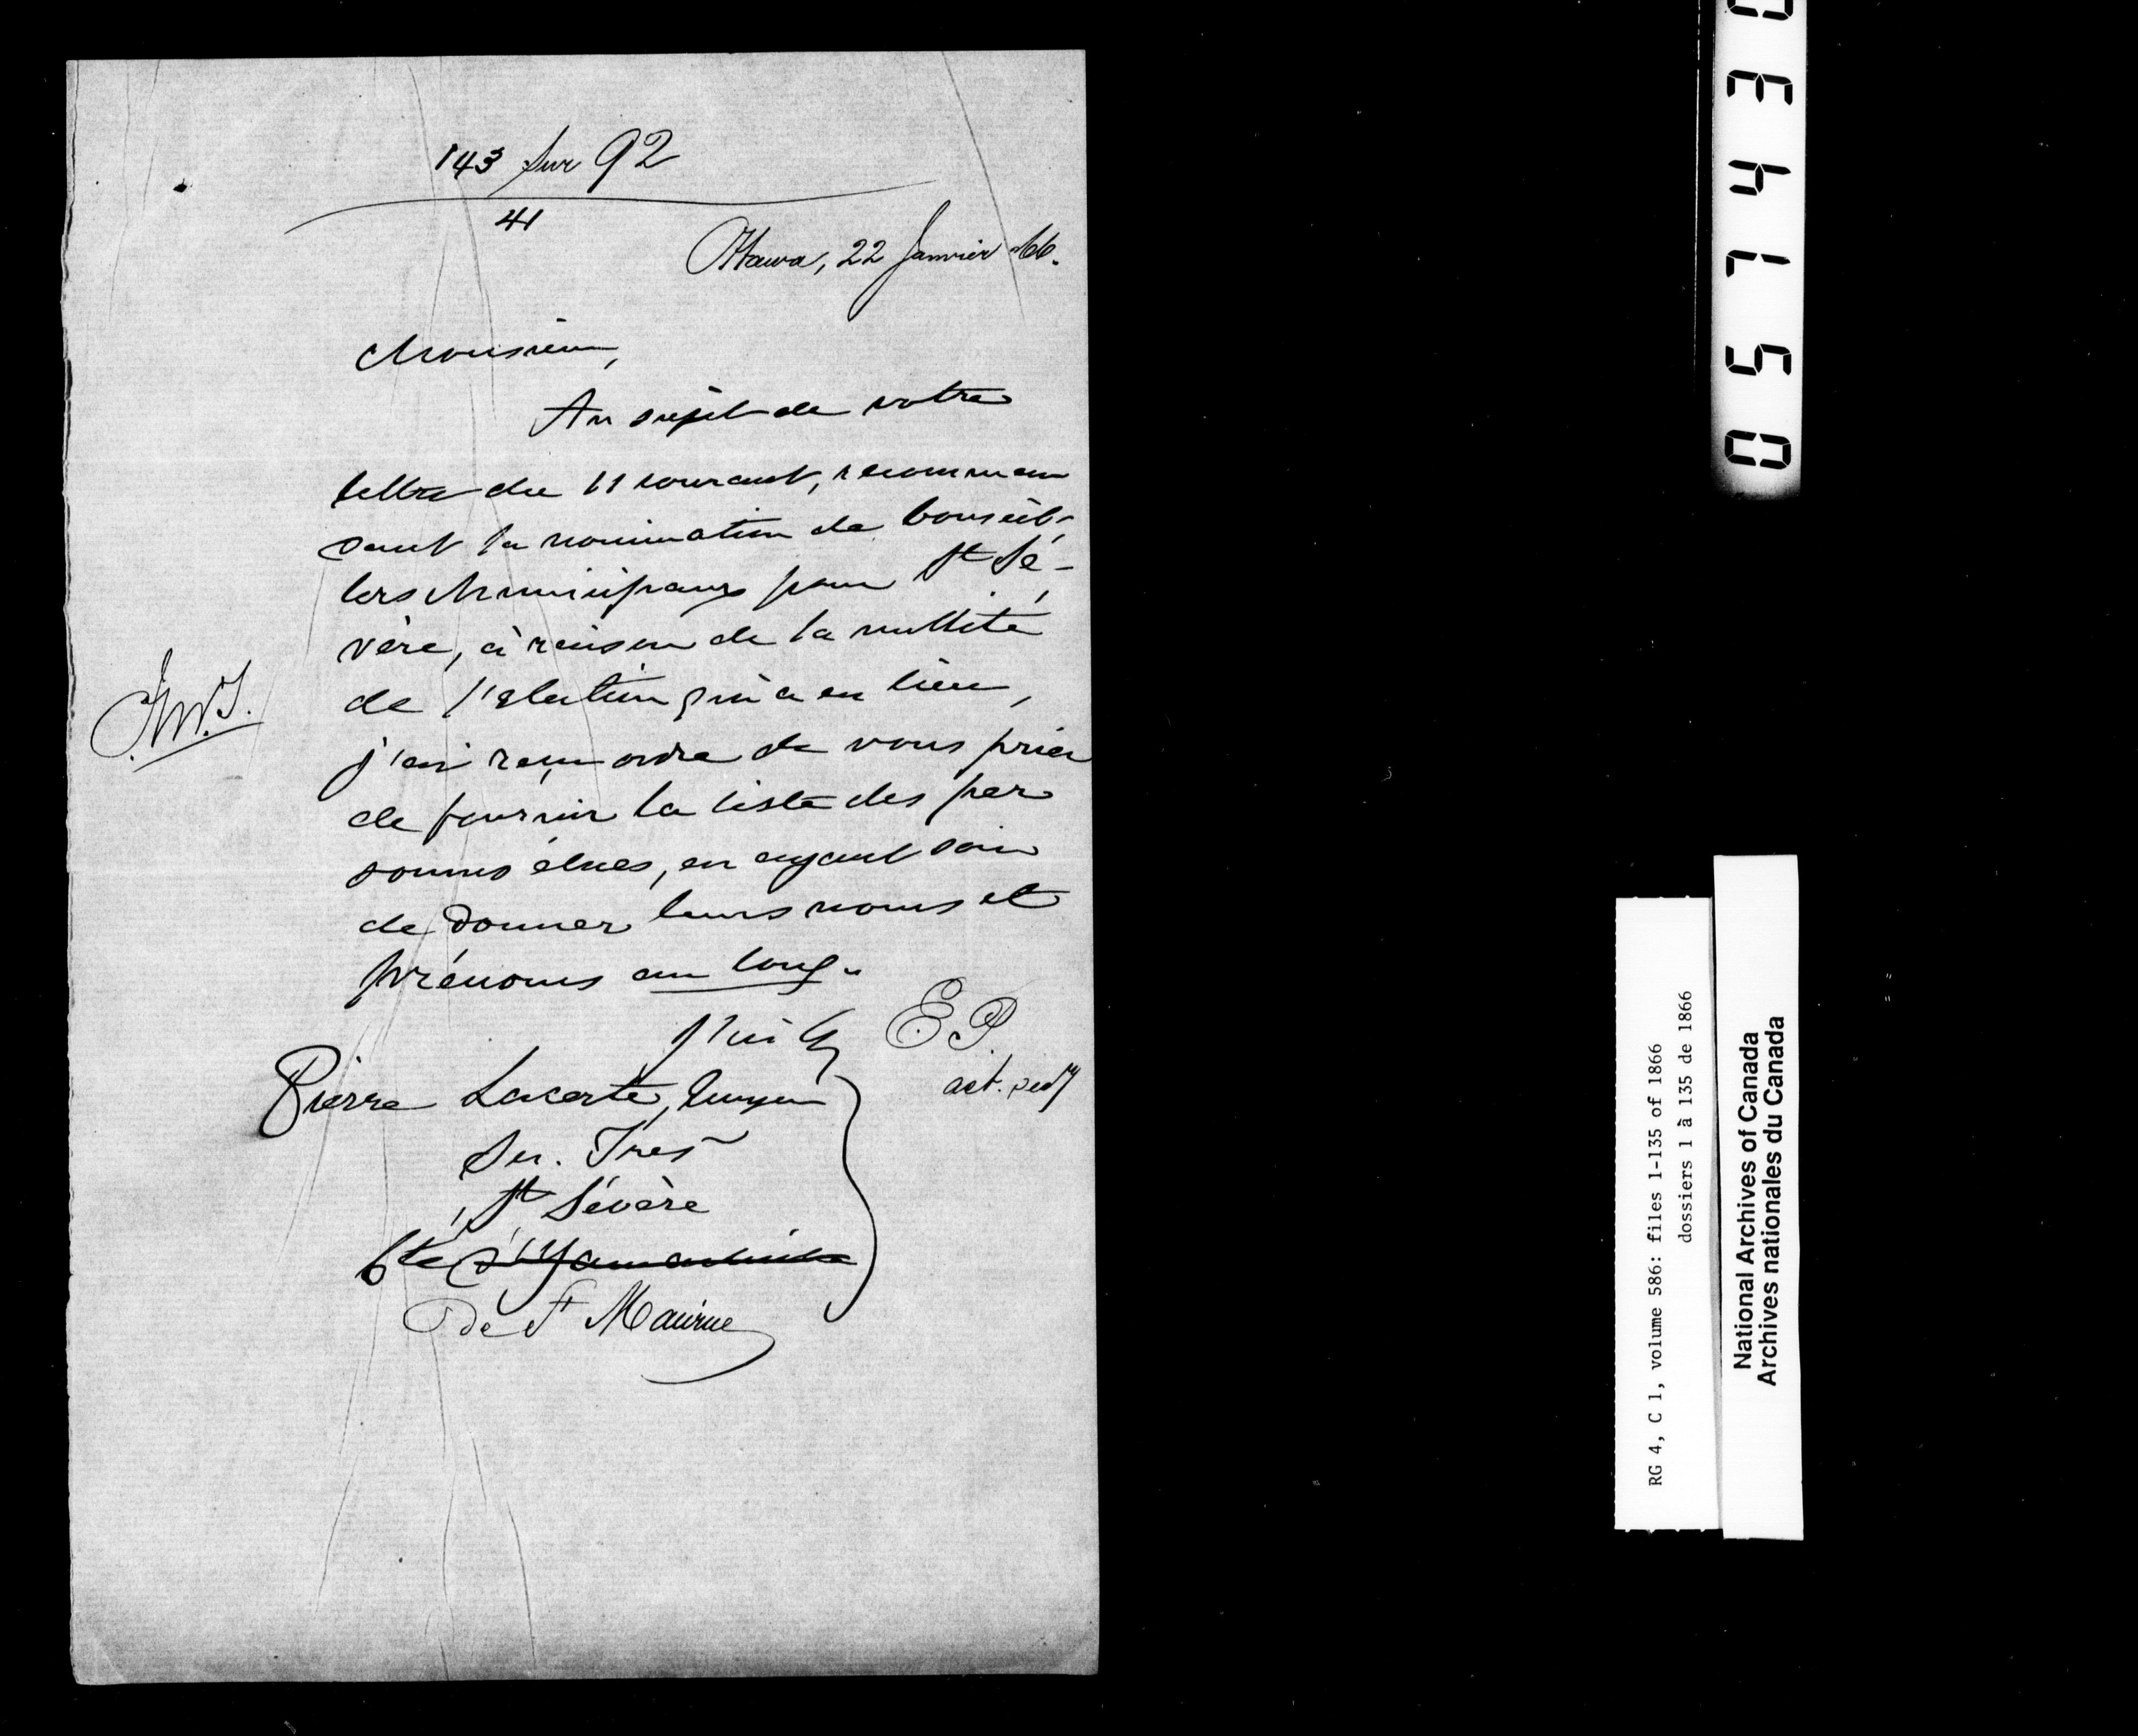 143 sur 92
41
Ottawa, 22 Janvier /66.
Monsieur,
Au sujet de votre
lettre du 11 courant, recomman
dant la nomination de Conseil-
lers Municipaux pour St Sé-
vère, à raison de la nullité
de l'election qui a eu lieu,
j'ai reçu ordre de vous prier
de fournir la liste des per
sonnes élues, en ayant soin
de donner leurs noms et
prénoms au long.
J'ai &c
E P
act. secy
Pierre Lacerte, Ecuyer
Sec. Tres
St Sévère
Cté d'Yamachiche
De St Maurice
0 5 7 4 3 0
RG 4, C 1, volume 586: files 1-135 of 1866
dossiers 1 à 135 de 1866
National Archives of Canada
Archives nationales du Canada